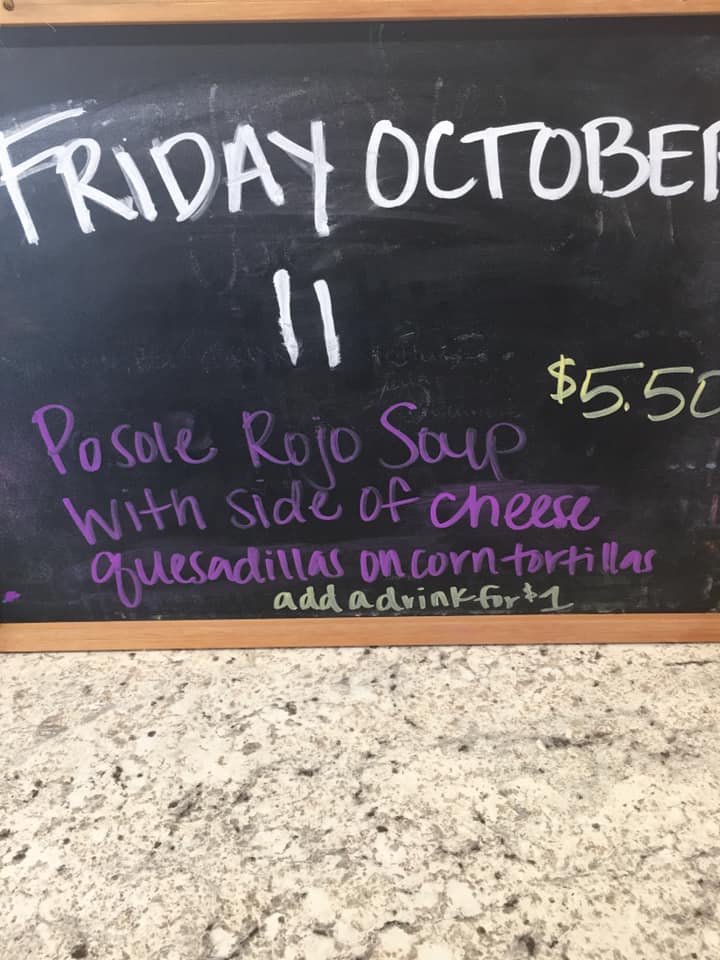 FRIDAY OCTOBER
11
$5.50
Posole Rojo Soup
with side of cheese
quesadillas on corn tortillas
add a drink for $1